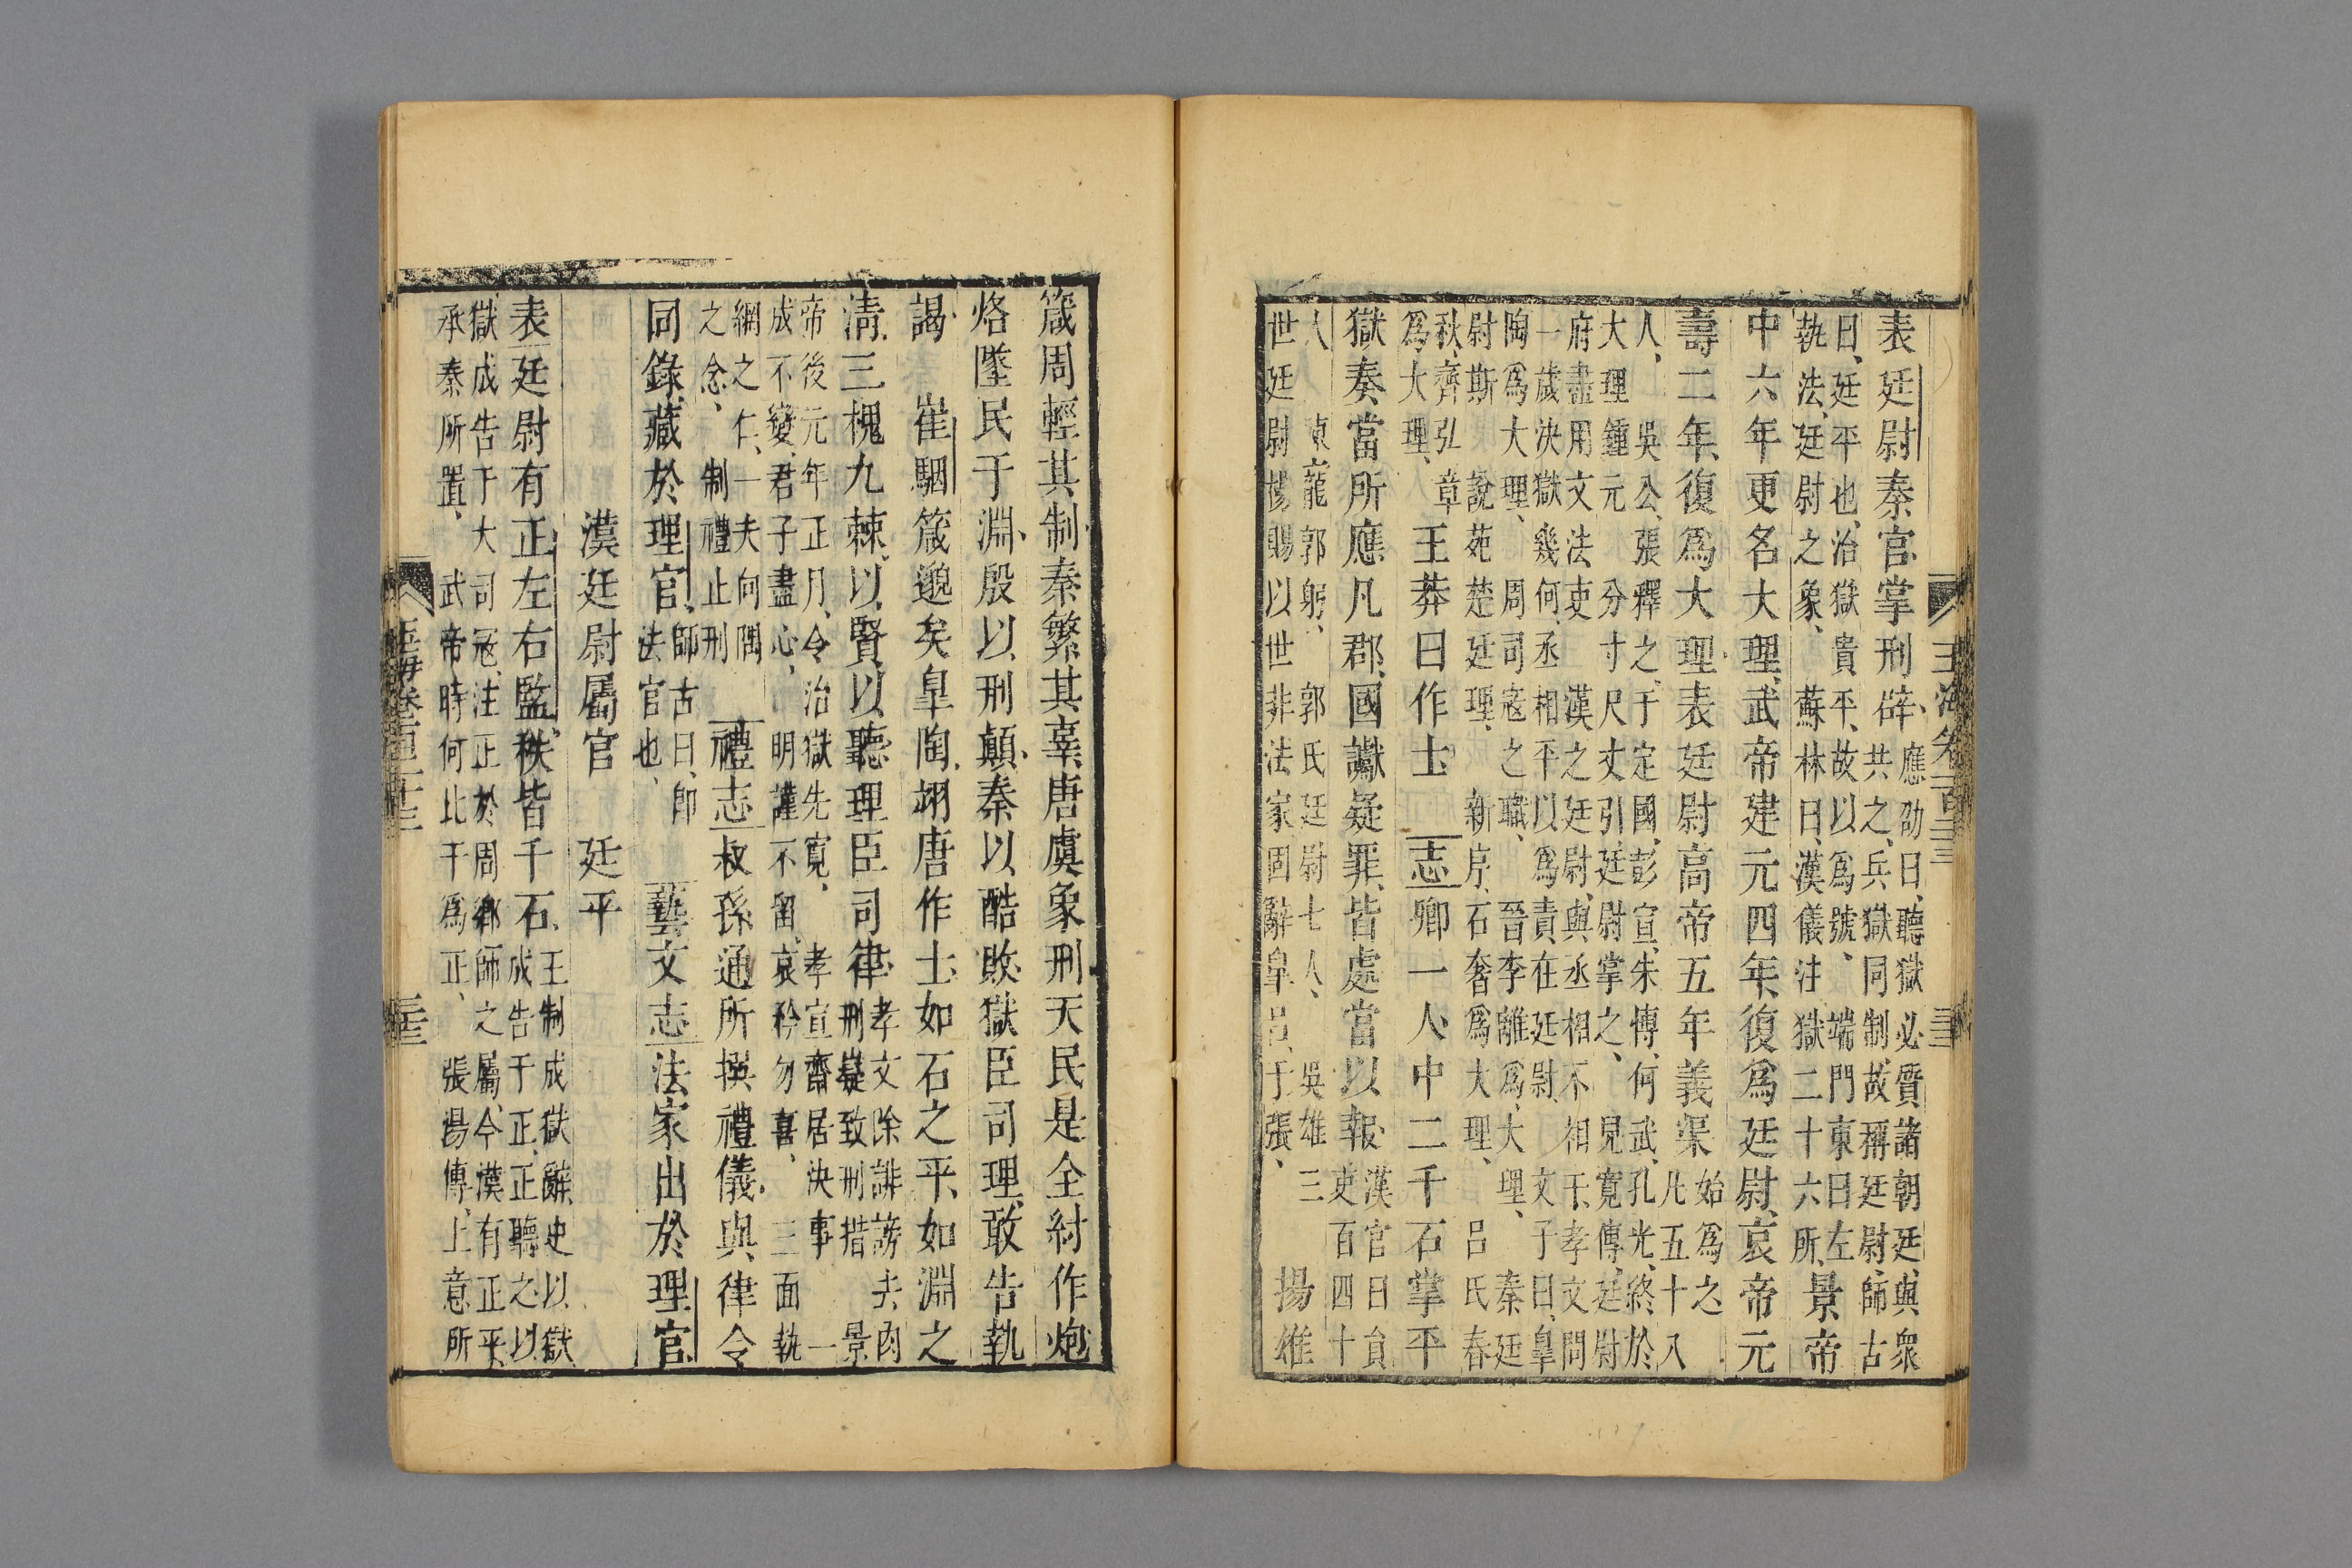 表廷尉秦官掌刑辟應劭曰聽獄必質諸朝廷與衆
共之兵獄同制故稱廷尉師古
曰廷平也治獄貴平故以爲號端門東曰左
執法廷尉之象蘇林曰漢儀注獄二十六所景帝
中六年更名大理武帝建元四年復爲廷尉哀帝元
壽二年復爲大理表廷尉高帝五年義渠始爲之
凡五十八
人吳公張釋之于定國彭宣朱博何武孔光終於
大理鍾元分寸尺丈引廷尉掌之兒寬傳廷尉
府盡用文法吏漢之廷尉與丞相不相干孝文問
一歲決獄幾何丞相平以爲責在廷尉文子曰皐
陶爲大理周司寇之職晉李離爲大理秦廷
尉斯說苑楚廷理新序石奢爲大理呂氏春
秋齊弘章
爲大理王莽曰作士志卿一人中二千石掌平
獄奏當所應凡郡國讞疑罪皆處當以報漢官曰員
吏百四十
人陳寵郭躬郭氏廷尉七人吳雄三
世廷尉楊賜以世非法家固辭皐呂于張揚雄
玉海卷一百二十三
箴周輕其制秦繁其辜唐虞象刑天民是全紂作炮
烙墜民于淵殷以刑顛秦以酷敗獄臣司理敢告執
謁崔駰箴邈矣皐陶翊唐作士如石之平如淵之
淸三槐九棘以賢以聽理臣司律孝文除誹謗去肉
刑嶷致刑措景
帝後元年正月令治獄先寬孝宣齋居決事一
成不變君子盡心明謹不留哀矜勿喜三面執
網之仁一夫向隅
之念制禮止刑禮志叔孫通所撰禮儀與律令
同錄藏於理官師古曰卽
法官也藝文志法家出於理官
漢廷尉屬官廷平
表廷尉有正左右監秩皆千石王制成獄辭史以獄
成告于正正聽之以
獄成告于大司寇注正於周鄕師之屬今漢有正平
承秦所置武帝時何比干爲正張湯傳上意所
玉海卷一百二十三